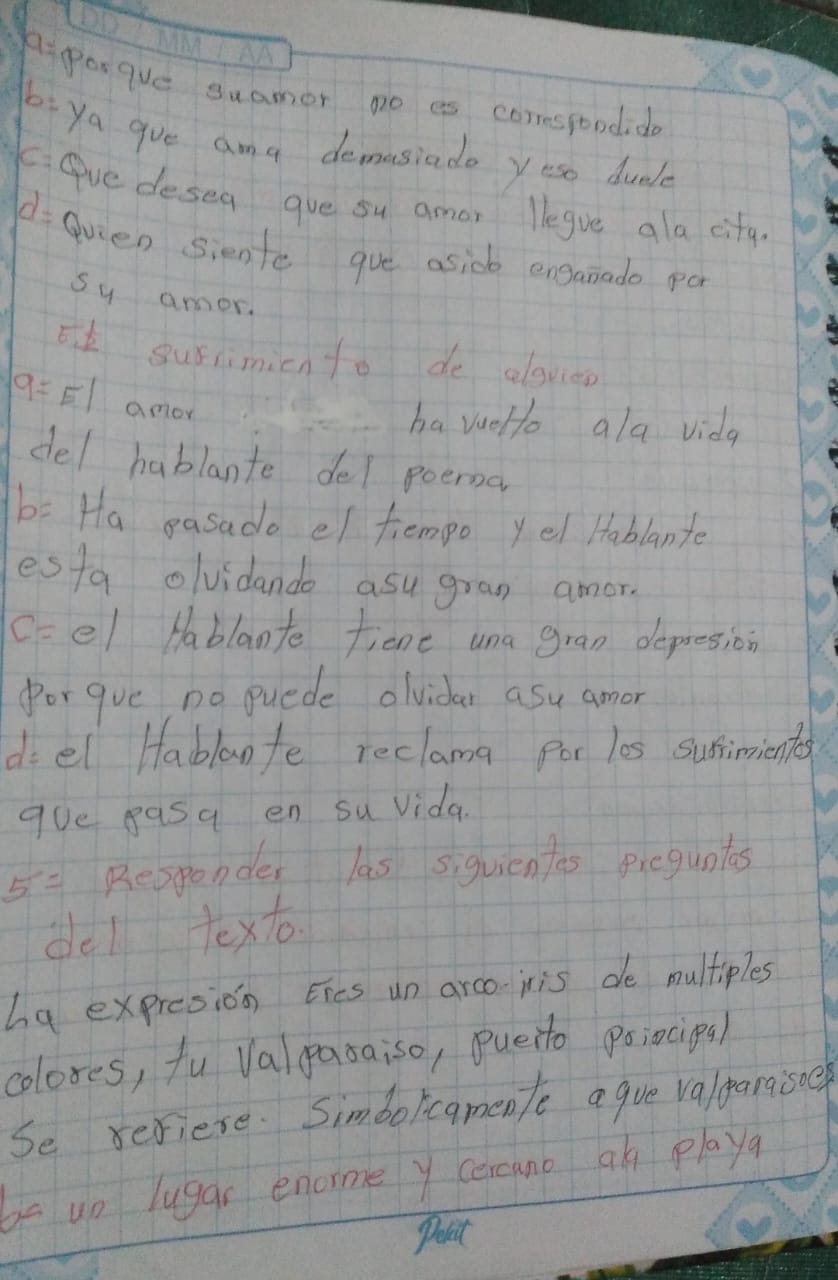 DD / MM / AA
a= porque suamor no es correspondido
b= ya que ama demasiado y eso duele
c= Que desea que su amor llegue ala cita.
d= Quien siente que asido engañado por
su amor.
sufrimiento de alguien
a= El amor ha vuelto ala vida
del hablante del poema
b= Ha pasado el tiempo y el Hablante
esta olvidando asu gran amor.
c= el Hablante tiene una gran depresión
por que no puede olvidar asu amor
d= el Hablante reclama por los sufrimientos
que pasa en su vida.
5= Responder las siguientes preguntas
del texto.
La expresión Eres un arco-iris de multiples
colores, tu Valparaiso, puerto principal
Se refiere. Simbolicamente a que valparaisoes
b= un lugar enorme y cercano ala playa
Pekit